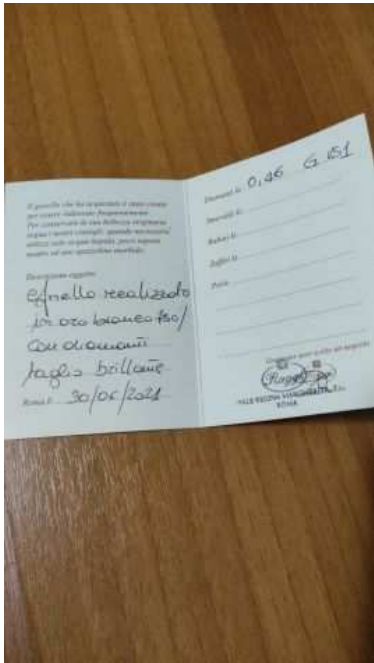 Il gioiello che ha acquistato è stato creato
per essere indossato frequentemente.
Per conservare la sua bellezza originaria
segua i nostri consigli: quando necessario
utilizzi solo acqua tiepida, poco sapone
neutro ed uno spazzolino morbido.
Descrizione oggetto:
Anello realizzato
in oro bianco 750/
con diamanti
taglio brillante
Roma lì 30/06/2021
Diamanti ct. 0,46 G VS1
Smeraldi ct.
Rubini ct.
Zaffiri ct.
Perle
VIALE REGINA MARGHERITA,
ROMA